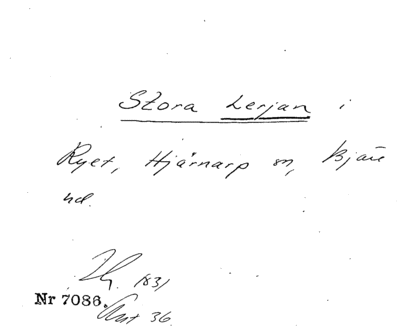 Stora Lerjan i
Ryet, Hjärnarp sn, Bjäre
hd.
1831
Nr 7086.
36